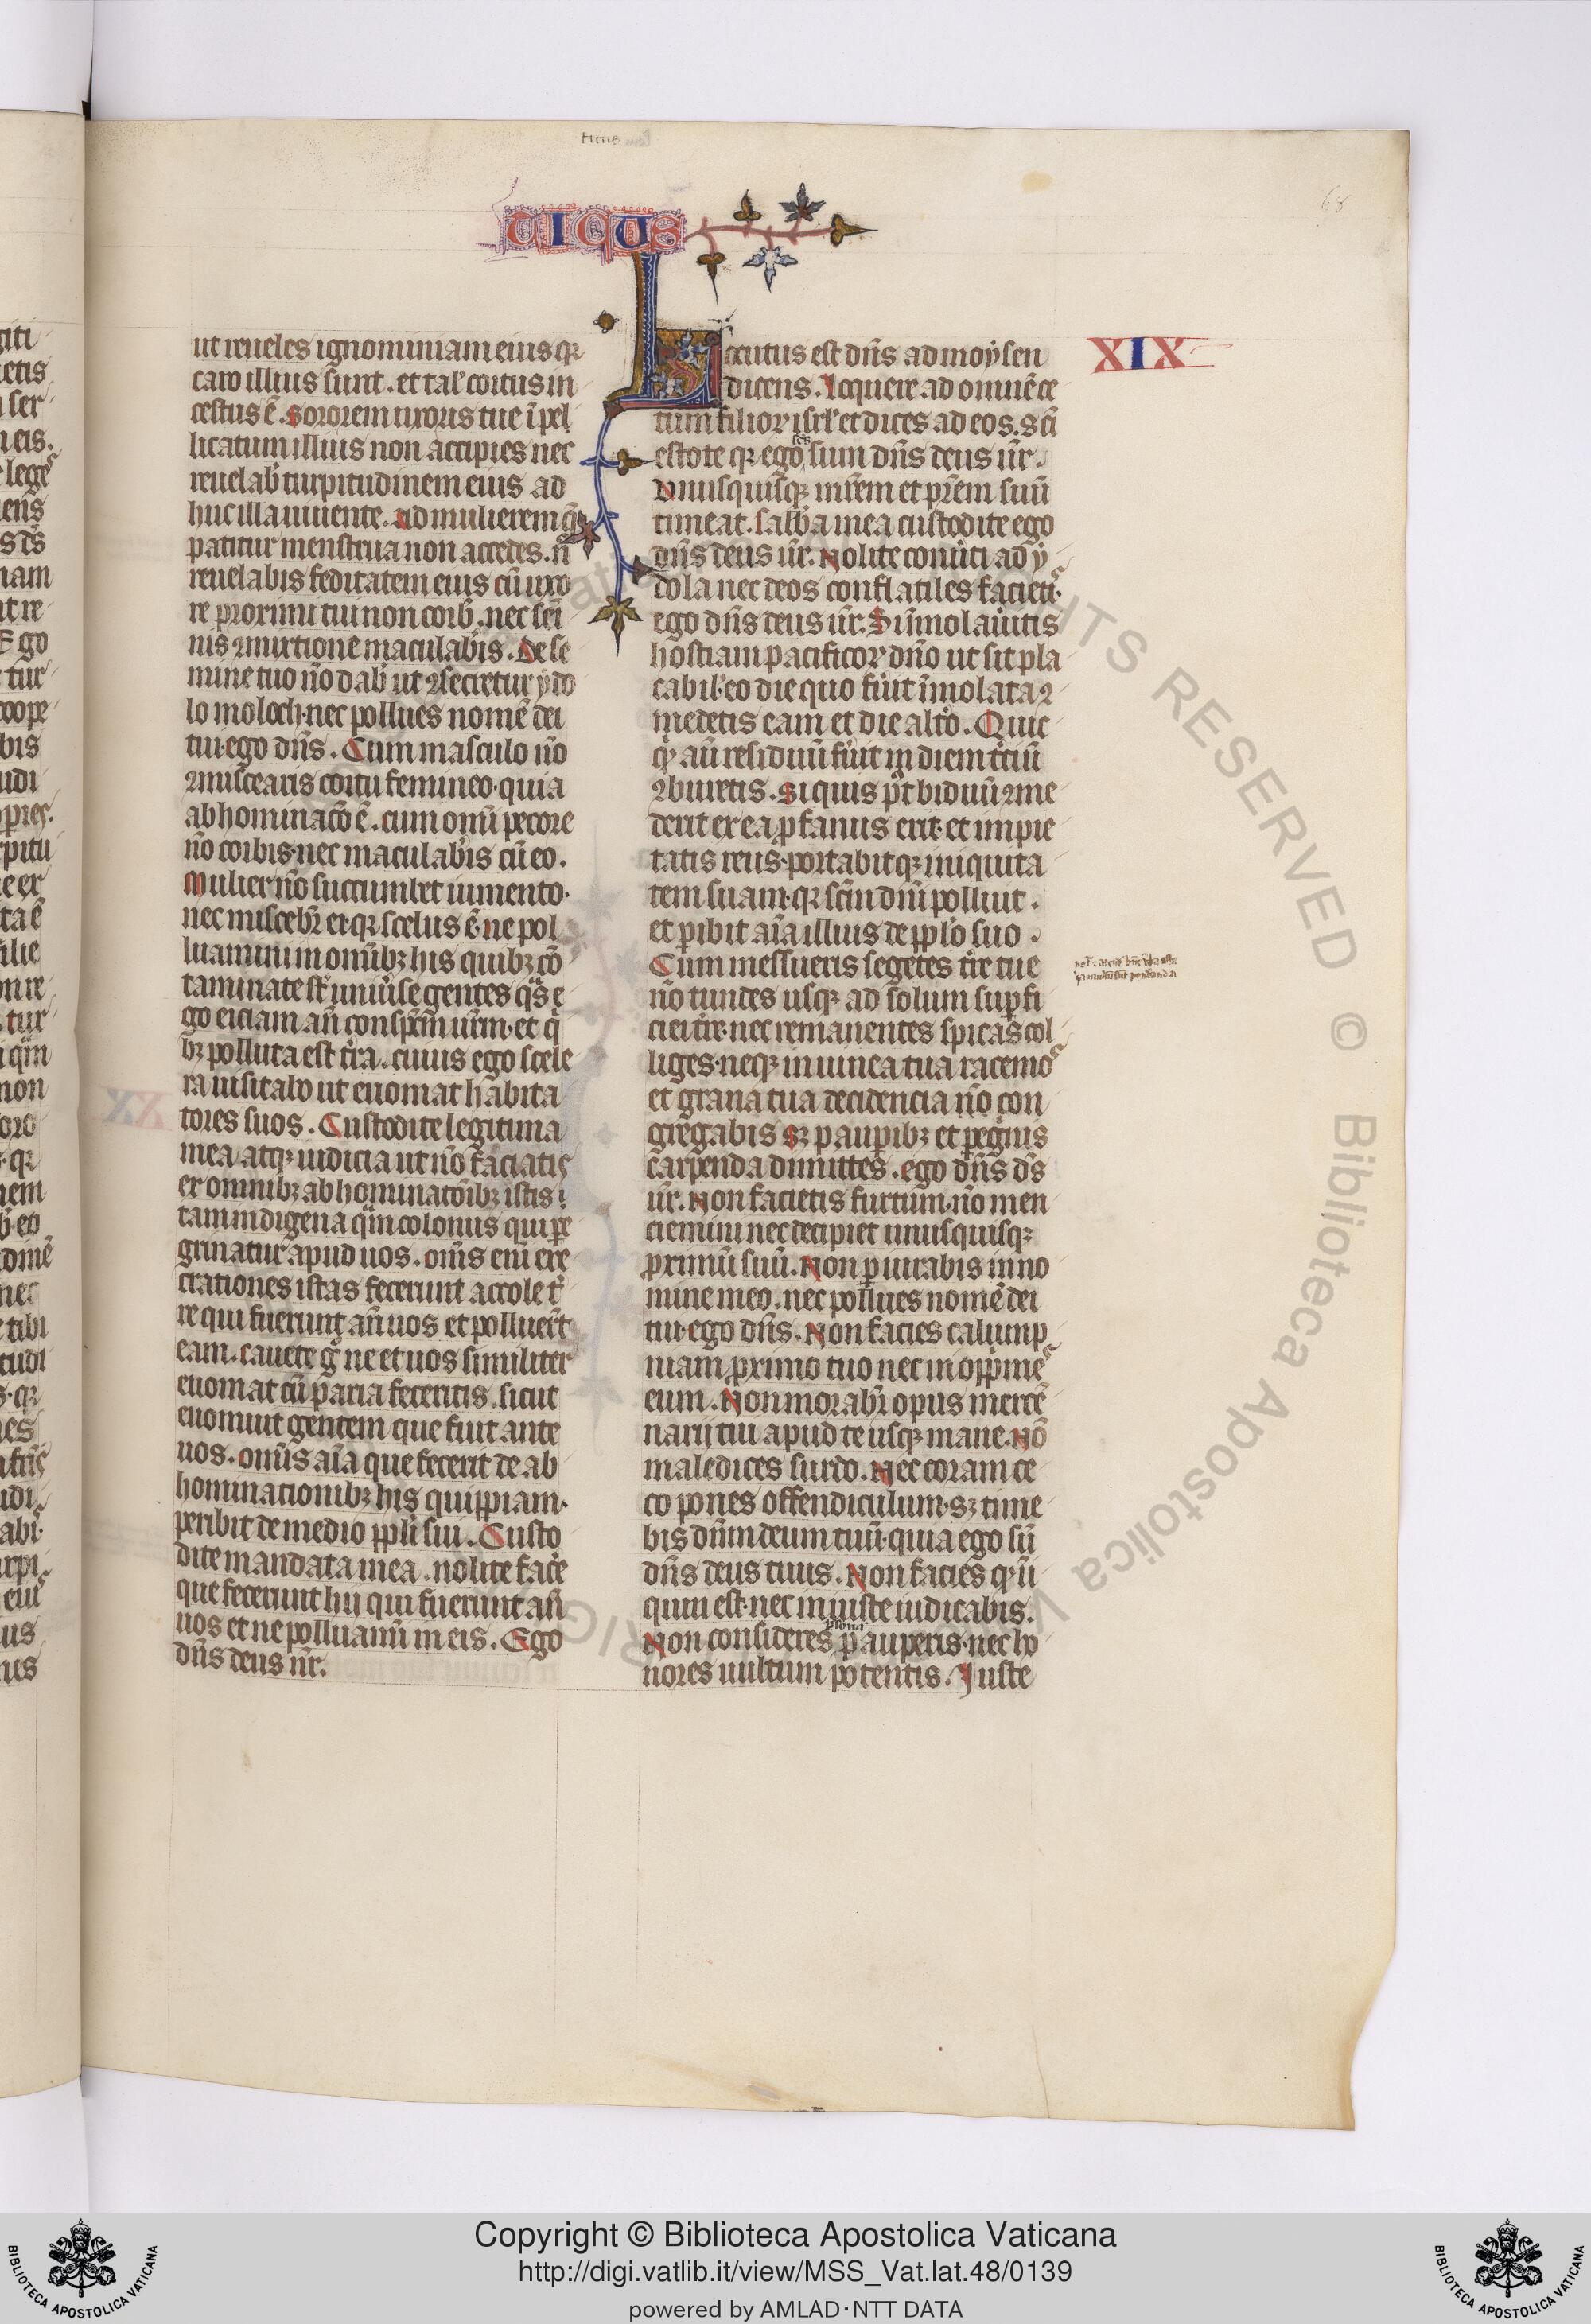 ticus
68
TICUS
ut reueles ignominiam eius qꝛ
caro illius sunt . et tal' coitus in
cestus ē . Sororem uxoris tue ī pel
licatum illius non accipies nec
reuelab' turpitudinem eius ad
huc illa uiuente . ad mulierem q̄
patitur menstrua non accedes . n̄
reuelabis feditatem eius cū uxo
re proximi tui non coib' . nec sēi
nis ꝯmixtione maculabis . De se
mine tuo n̄o dab' ut ꝯsecretur ydo
lo moloch · nec pollues nomē dei
tui · ego dn̄s . Cum masculo n̄o
ꝯmiscearis coitu femineo · quia
abhominac̄o ē . cum omī pecore
n̄o coibis · nec maculabis cū eo .
Mulier n̄o succumbet iumento ·
nec miscebr̄ ei · qꝛ scelus ē · ne pol
luamini in om̄ibꝫ his quibꝫ cō
taminate st̄ uniu'se gentes q̄s e
go eiciam an̄ conspc̄m ur̄m · et q̄
bꝫ polluta est t̄ra . cuius ego scele
ra uisitabo ut euomat habita
tores suos . Custodite legitima
mea atqꝫ iudicia ut n̄o faciatis
ex omnibꝫ abhominatōibꝫ istis :
tam indigena qm̄ colonus qui pe
grinatur apud uos . om̄s eni exe
crationes istas fecerunt accole t'
re qui fuerunt an̄ uos et polluer̄t
eam . cauete g° ne et uos similiter
euomat cū paria feceritis . sicut
euomuit gentem que fuit ante
uos . om̄is aīa que fecerit de ab
hominationibꝫ his quippiam ·
peribit de medio ppl'i sui . Custo
dite mandata mea . nolite face
que fecerunt hii qui fuerunt an̄
uos et ne polluamī in eis . Ego
dn̄s deus ur̄ .
XIX
Locutus est dn̄s ad moysen
dicens . Loquere ad omnē ce
tum filioꝝ isrl' et dices ad eos . Sc̄i
estote qꝛ ego sc̄s sum dn̄s deus ur̄ .
Vnusquisqꝫ mr̄em et pr̄em suū
timeat . sabb'a mea custodite ego
dn̄s deus ur̄ . Nolite conu'ti ad y
dola nec deos conflatiles facietis
ego dn̄s deus ur̄ . Si īmolau'itis
hostiam pacificoꝝ dn̄o ut sit pla
cabil' · eo die quo fu'it īmolata ꝯ
medetis eam et die alt'o . Quic
qͥd au' residuū fu'it in diem t'ciū
ꝯburetis . Si quis p't biduū ꝯme
derit ex ea ꝓfanus erit · et impie
tatis reus · portabitqꝫ iniquita
tem suam · qꝛ sc̄m dn̄i polluit .
et ꝑibit aīa illius de ppl'o suo .
Cum messueris segetes t'r̄e tue
n̄o tundes usqꝫ ad solum sup̄fi
ciei t'r̄e · nec remanentes spicas col
liges · neqꝫ in uinea tua racemos
et grana tua decidencia n̄o con
gregabis sꝫ pauꝑibꝫ et ꝑegͥnis
carpenda dimittes . ego dn̄s ds̄
ur̄ . Non facietis furtum · n̄o men
ciemini nec decipiet unusquisqꝫ
ꝓximū suū . Non ꝑiurabis in no
mine meo . nec pollues nomē dei
tui · ego dn̄s . Non facies calump
niam ꝓximo tuo nec ui oppͥmes
eum . Non morabr̄ opus mercē
narii tui apud te usqꝫ mane . Nō
maledices surdo . Nec coram ce
co pones offendiculum · sꝫ time
bis dn̄m deum tuū · quia ego sū
dn̄s deus tuus . Non facies qͩ i
quum est · nec iniuste iudicabis .
Non consideres ꝑsonā pauperis · nec ho
nores uultum potentis . Iuste
ALL RIGHTS RESERVED © Biblioteca Apostolica Vaticana
Copyright © Biblioteca Apostolica Vaticana
http://digi.vatlib.it/view/MSS_Vat.lat.48/0139
powered by AMLAD·NTT DATA
BIBLIOTECA APOSTOLICA VATICANA
BIBLIOTECA APOSTOLICA VATICANA